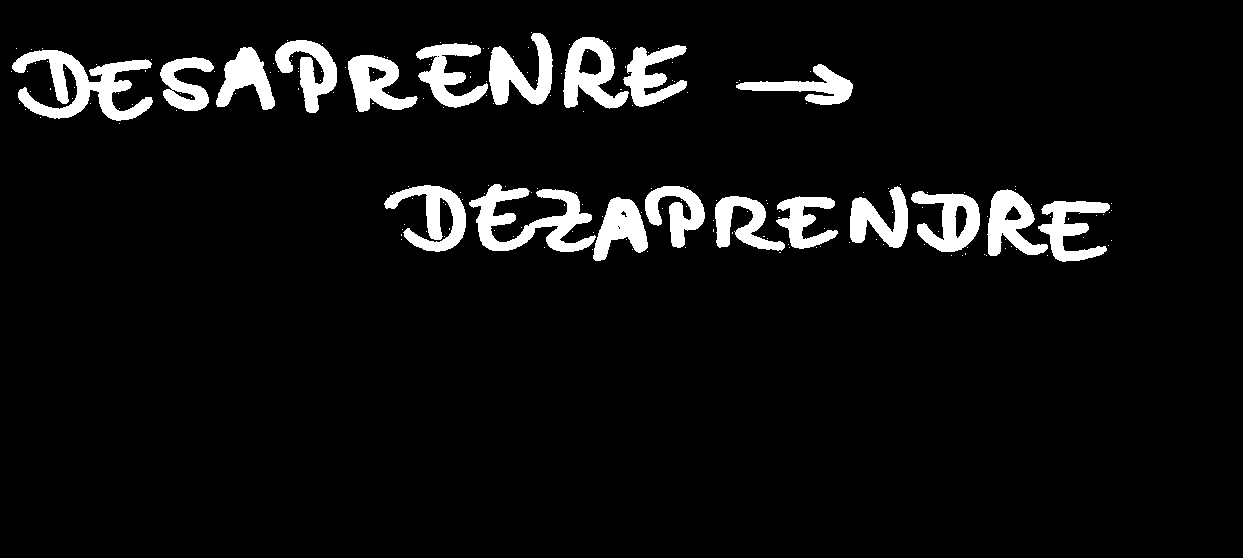 DESAPRENRE →
DEZAPRENDRE